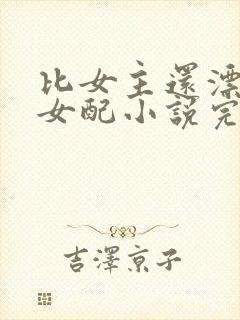 比女主還漂
女配小說完
吉澤京子